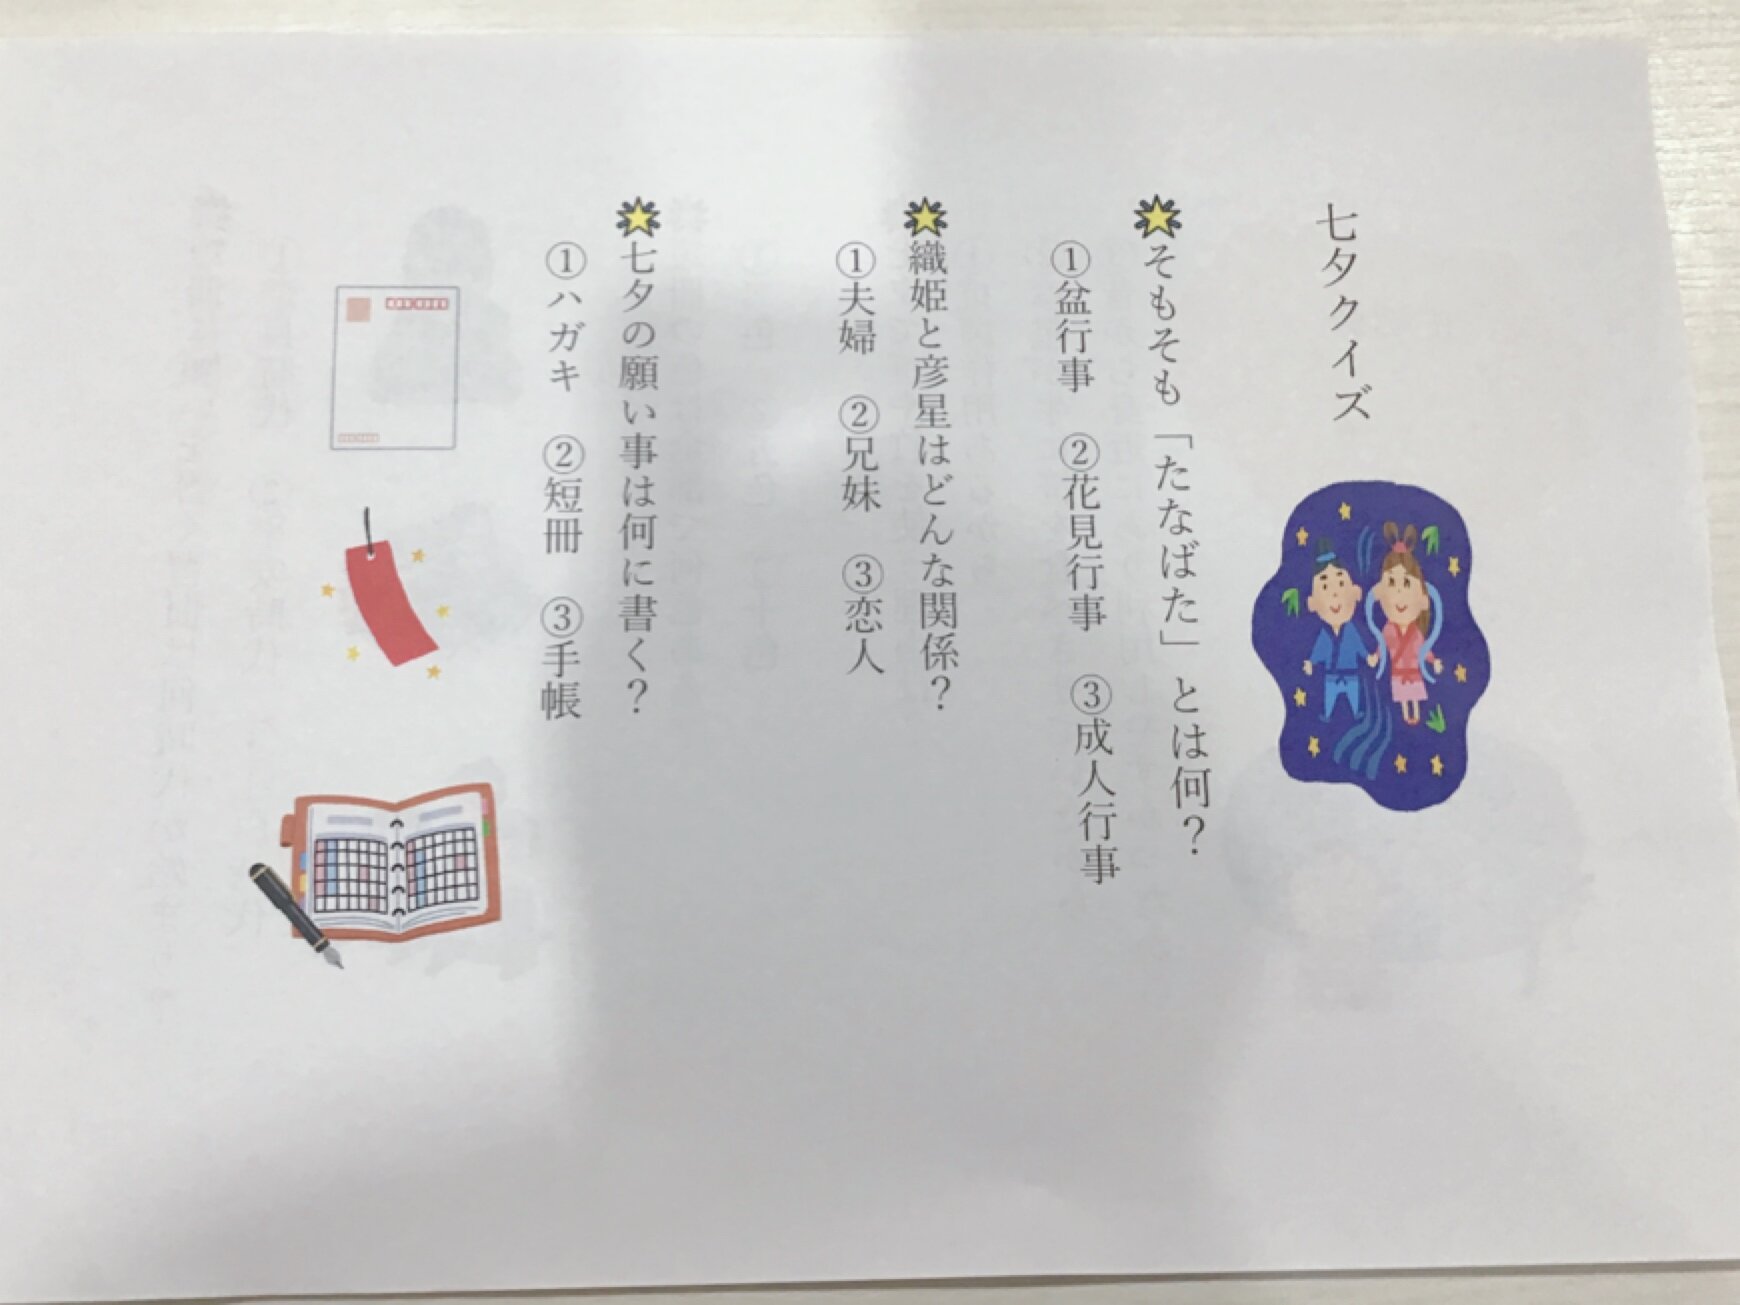 七夕クイズ
そもそも「たなばた」とは何？
①盆行事　②花見行事　③成人行事
織姫と彦星はどんな関係？
①夫婦　②兄妹　③恋人
七夕の願い事は何に書く？
①ハガキ　②短冊　③手帳